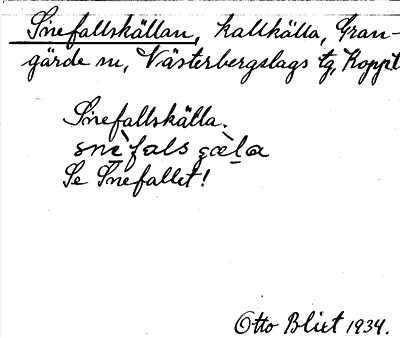 Snefallskällan, kallkälla, Gran-
gärde sn, Västerbergslags tg, Koppl
Snefallskälla.
Se Snefallet!
Otto Blixt 1934.